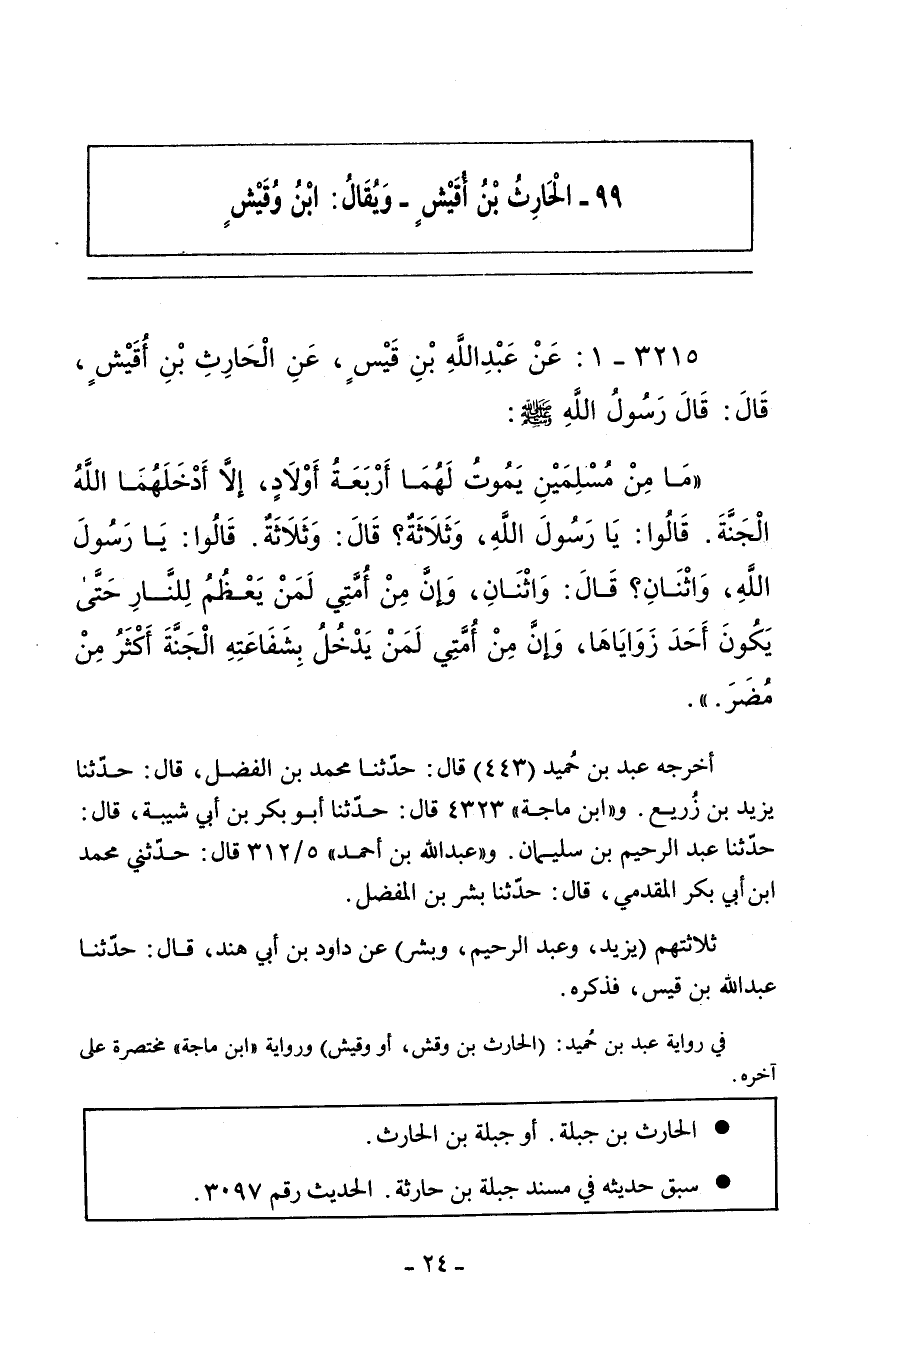 ٩٩ - الْحَارِثُ بْنُ أُقَيْشٍ - وَيُقَالُ: ابْنُ وُقَيْشٍ
٣٢١٥ - ١: عَنْ عَبْدِاللَّهِ بْنِ قَيْسٍ، عَنِ الْحَارِثِ بْنِ أُقَيْشٍ،
قَالَ: قَالَ رَسُولُ اللَّهِ ﷺ:
«مَا مِنْ مُسْلِمَيْنِ يَمُوتُ لَهُمَا أَرْبَعَةُ أَوْلَادٍ، إِلَّا أَدْخَلَهُمَا اللَّهُ
الْجَنَّةَ. قَالُوا: يَا رَسُولَ اللَّهِ، وَثَلَاثَةٌ؟ قَالَ: وَثَلَاثَةٌ. قَالُوا: يَا رَسُولَ
اللَّهِ، وَاثْنَانِ؟ قَالَ: وَاثْنَانِ، وَإِنَّ مِنْ أُمَّتِي لَمَنْ يَعْظُمُ لِلنَّارِ حَتَّىٰ
يَكُونَ أَحَدَ زَوَايَاهَا، وَإِنَّ مِنْ أُمَّتِي لَمَنْ يَدْخُلُ بِشَفَاعَتِهِ الْجَنَّةَ أَكْثَرُ مِنْ
مُضَرَ.».
أخرجه عبد بن حُميد (٤٤٣) قال: حدّثنا محمد بن الفضل، قال: حدّثنا
يزيد بن زُريع. و«ابن ماجة» ٤٣٢٣ قال: حدّثنا أبو بكر بن أبي شيبة، قال:
حدّثنا عبد الرحيم بن سليمان. و«عبدالله بن أحمد» ٣١٢/٥ قال: حدّثني محمد
ابن أبي بكر المقدمي، قال: حدّثنا بشر بن المفضل.
ثلاثتهم (يزيد، وعبد الرحيم، وبشر) عن داود بن أبي هند، قال: حدّثنا
عبدالله بن قيس، فذكره.
في رواية عبد بن حُميد: (الحارث بن وقش، أو وقيش) ورواية «ابن ماجة» مختصرة على
آخره.
● الحارث بن جبلة. أو جبلة بن الحارث.
● سبق حديثه في مسند جبلة بن حارثة. الحديث رقم ٣٠٩٧.
- ٢٤ -